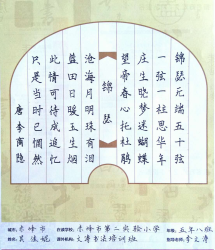 锦瑟无端五十弦
一弦一柱思华年
庄生晓梦迷蝴蝶
望帝春心托杜鹃
锦瑟
沧海月明珠有泪
蓝田日暖玉生烟
此情可待成追忆
只是当时已惘然
唐 李商隐
城市：赤峰市 在读学校：赤峰市第二实验小学 年级：五年八班
课外机构：文涛书法培训班